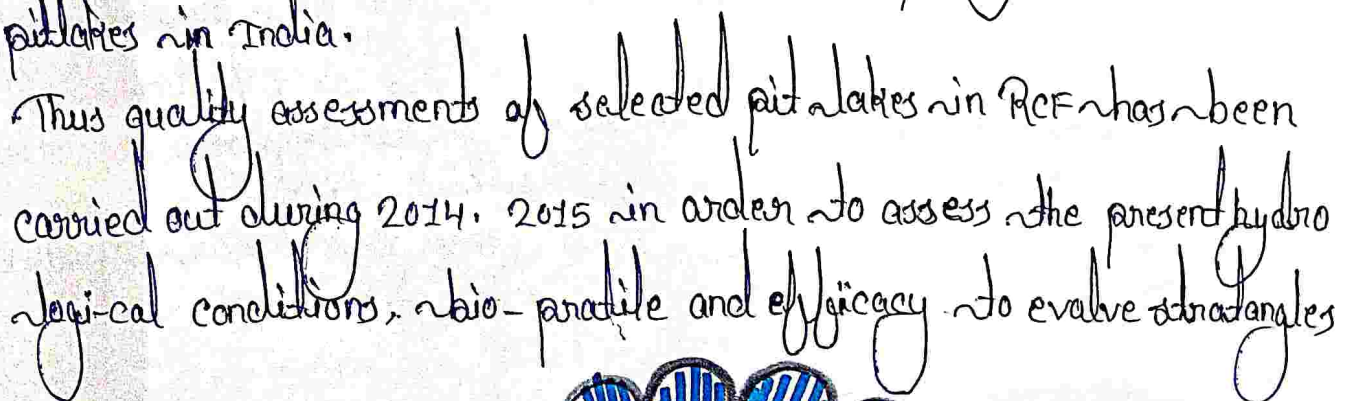 pitlakes in India.
Thus quality assessments of selected pit lakes in RCF has been
carried out during 2014. 2015 in order to assess the present hydro
logi-cal conditions, bio-profile and efficacy to evolve stratangles